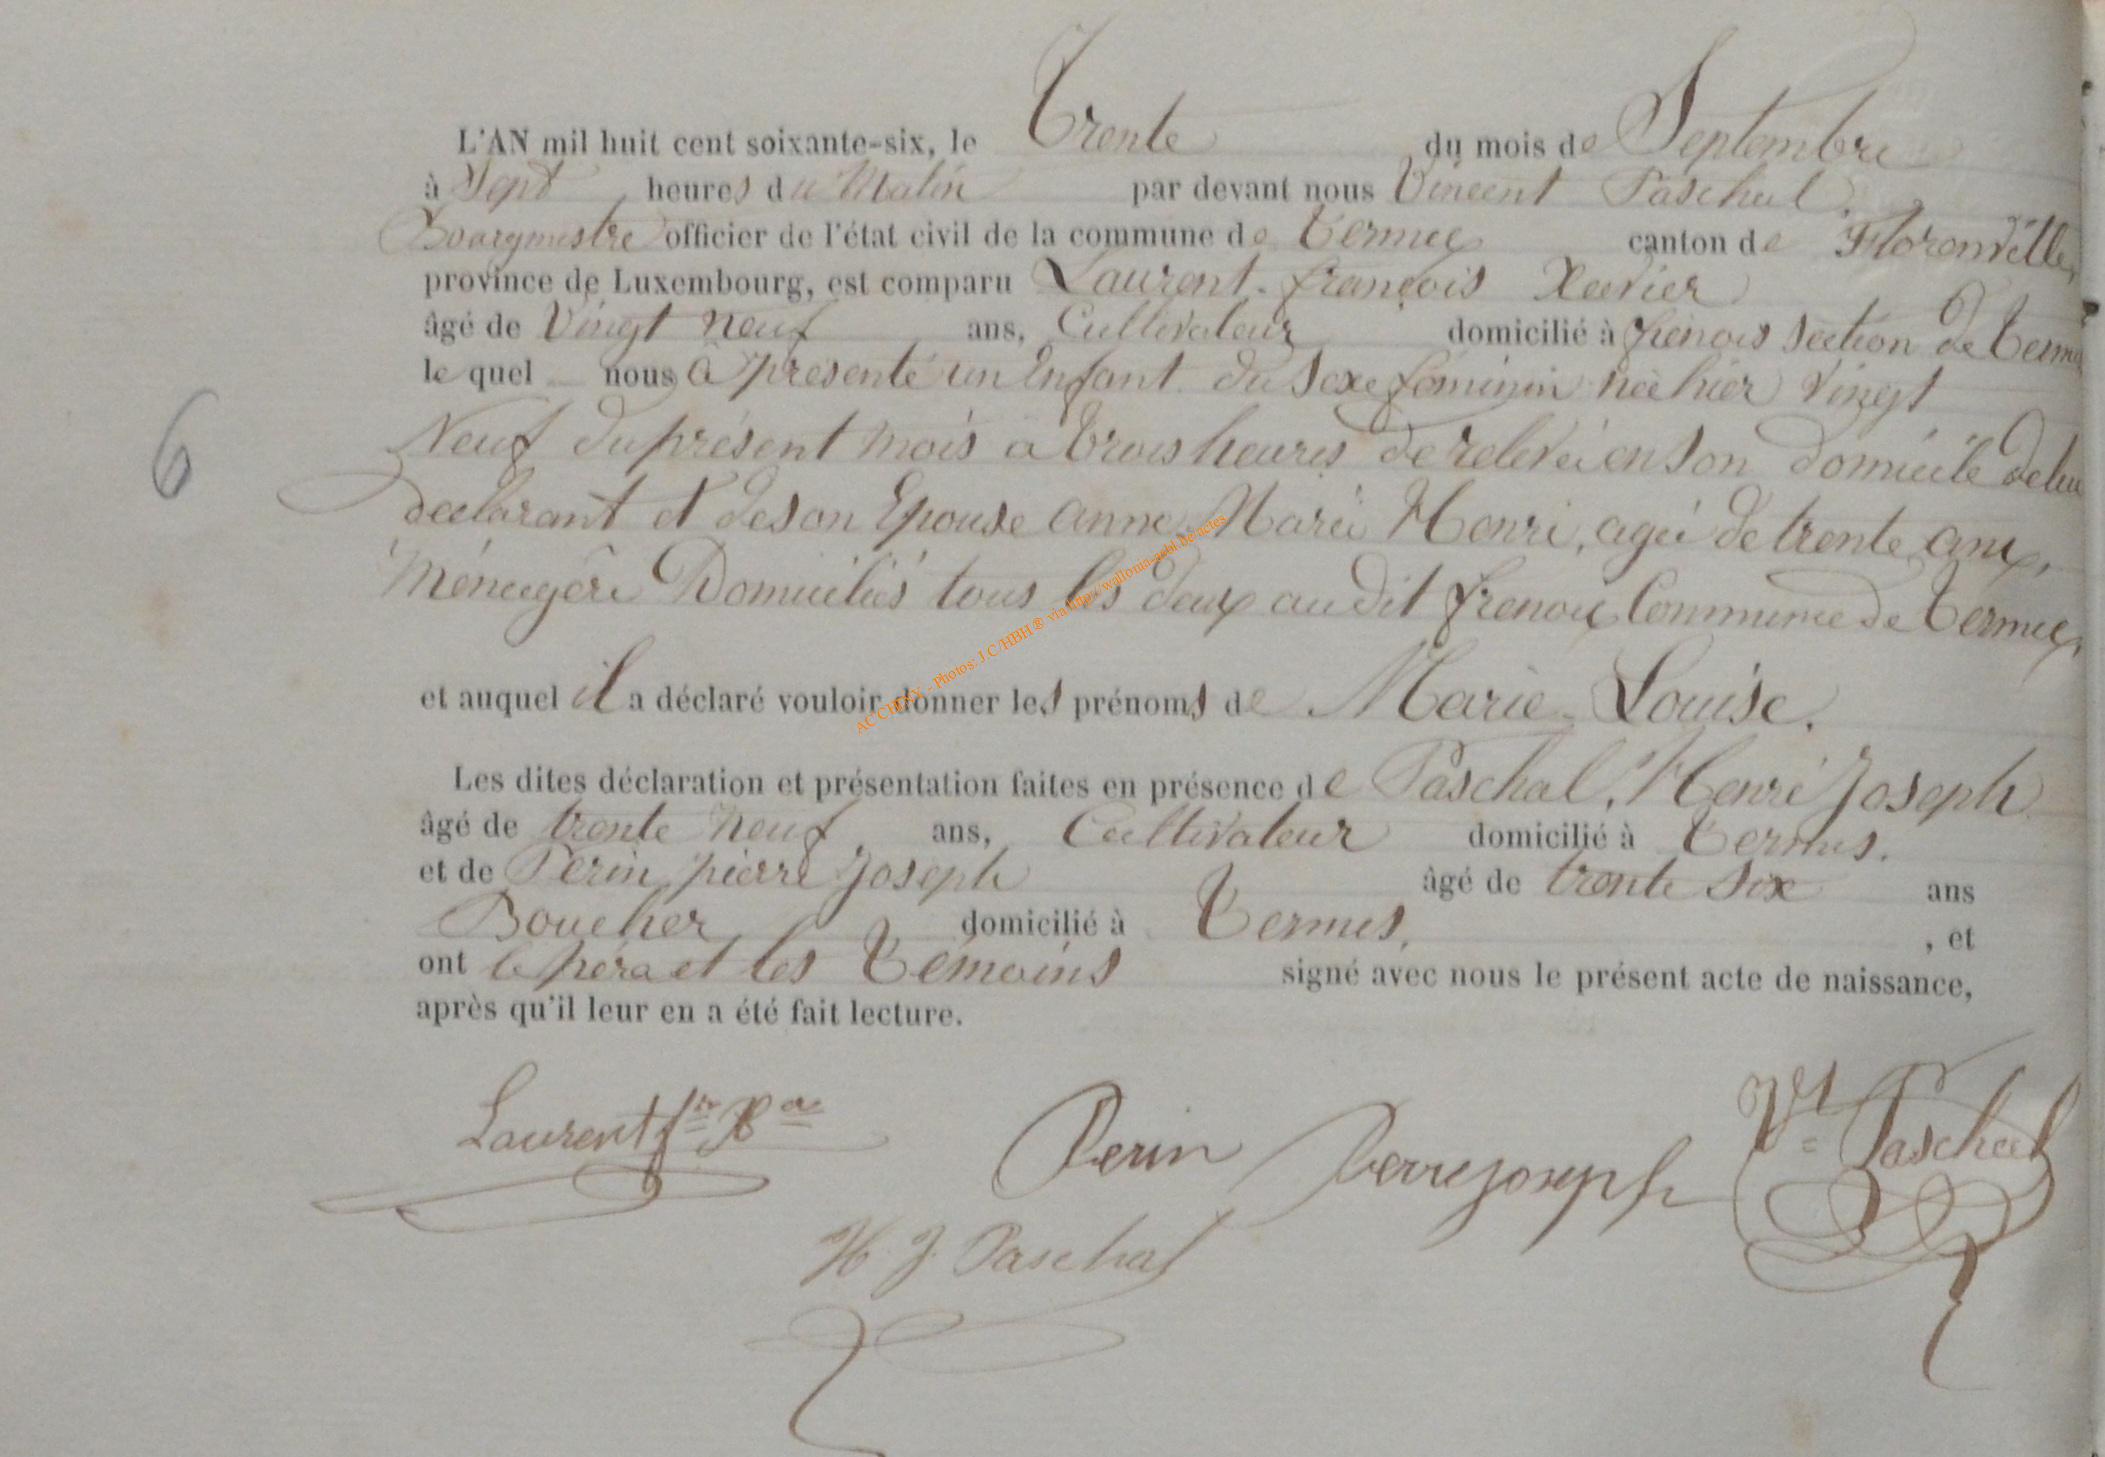 L'AN mil huit cent soixante-six, le Trente du mois de Septembre
à Sept heures du Matin par devant nous Vincent Paschal,
Bourgmestre officier de l'état civil de la commune de Termes canton de Florenville,
province de Luxembourg, est comparu Laurent-françois Xavier
âgé de Vingt neuf ans, Cultivateur domicilié à frenois section de Termes
le quel nous à présenté un Enfant du Sexe féminin née hier Vingt
6
Neuf du présent mois à trois heures de relevée en Son domicile de lui
declarant et de son Epouse anne-Marie Henri, agée de trente ans,
Ménagère Domiciliés tous les deux au dit frenois Commune de Termes,
et auquel il a déclaré vouloir donner les prénoms de Marie-Louise.
Les dites déclaration et présentation faites en présence de Paschal, Henri Joseph
âgé de trente neuf ans, Cultivateur domicilié à Termes.
et de Perin pierre Joseph âgé de trente six ans
Boucher domicilié à Termes, , et
ont le père et les Témoins signé avec nous le présent acte de naissance,
après qu'il leur en a été fait lecture.
Laurent fis Xer
Perin Pierre joseph
Vt Paschal
H. J. Paschal
AC CHINX - Photos: J.C/HBH ® via http://wallonia-asbl.be/actes